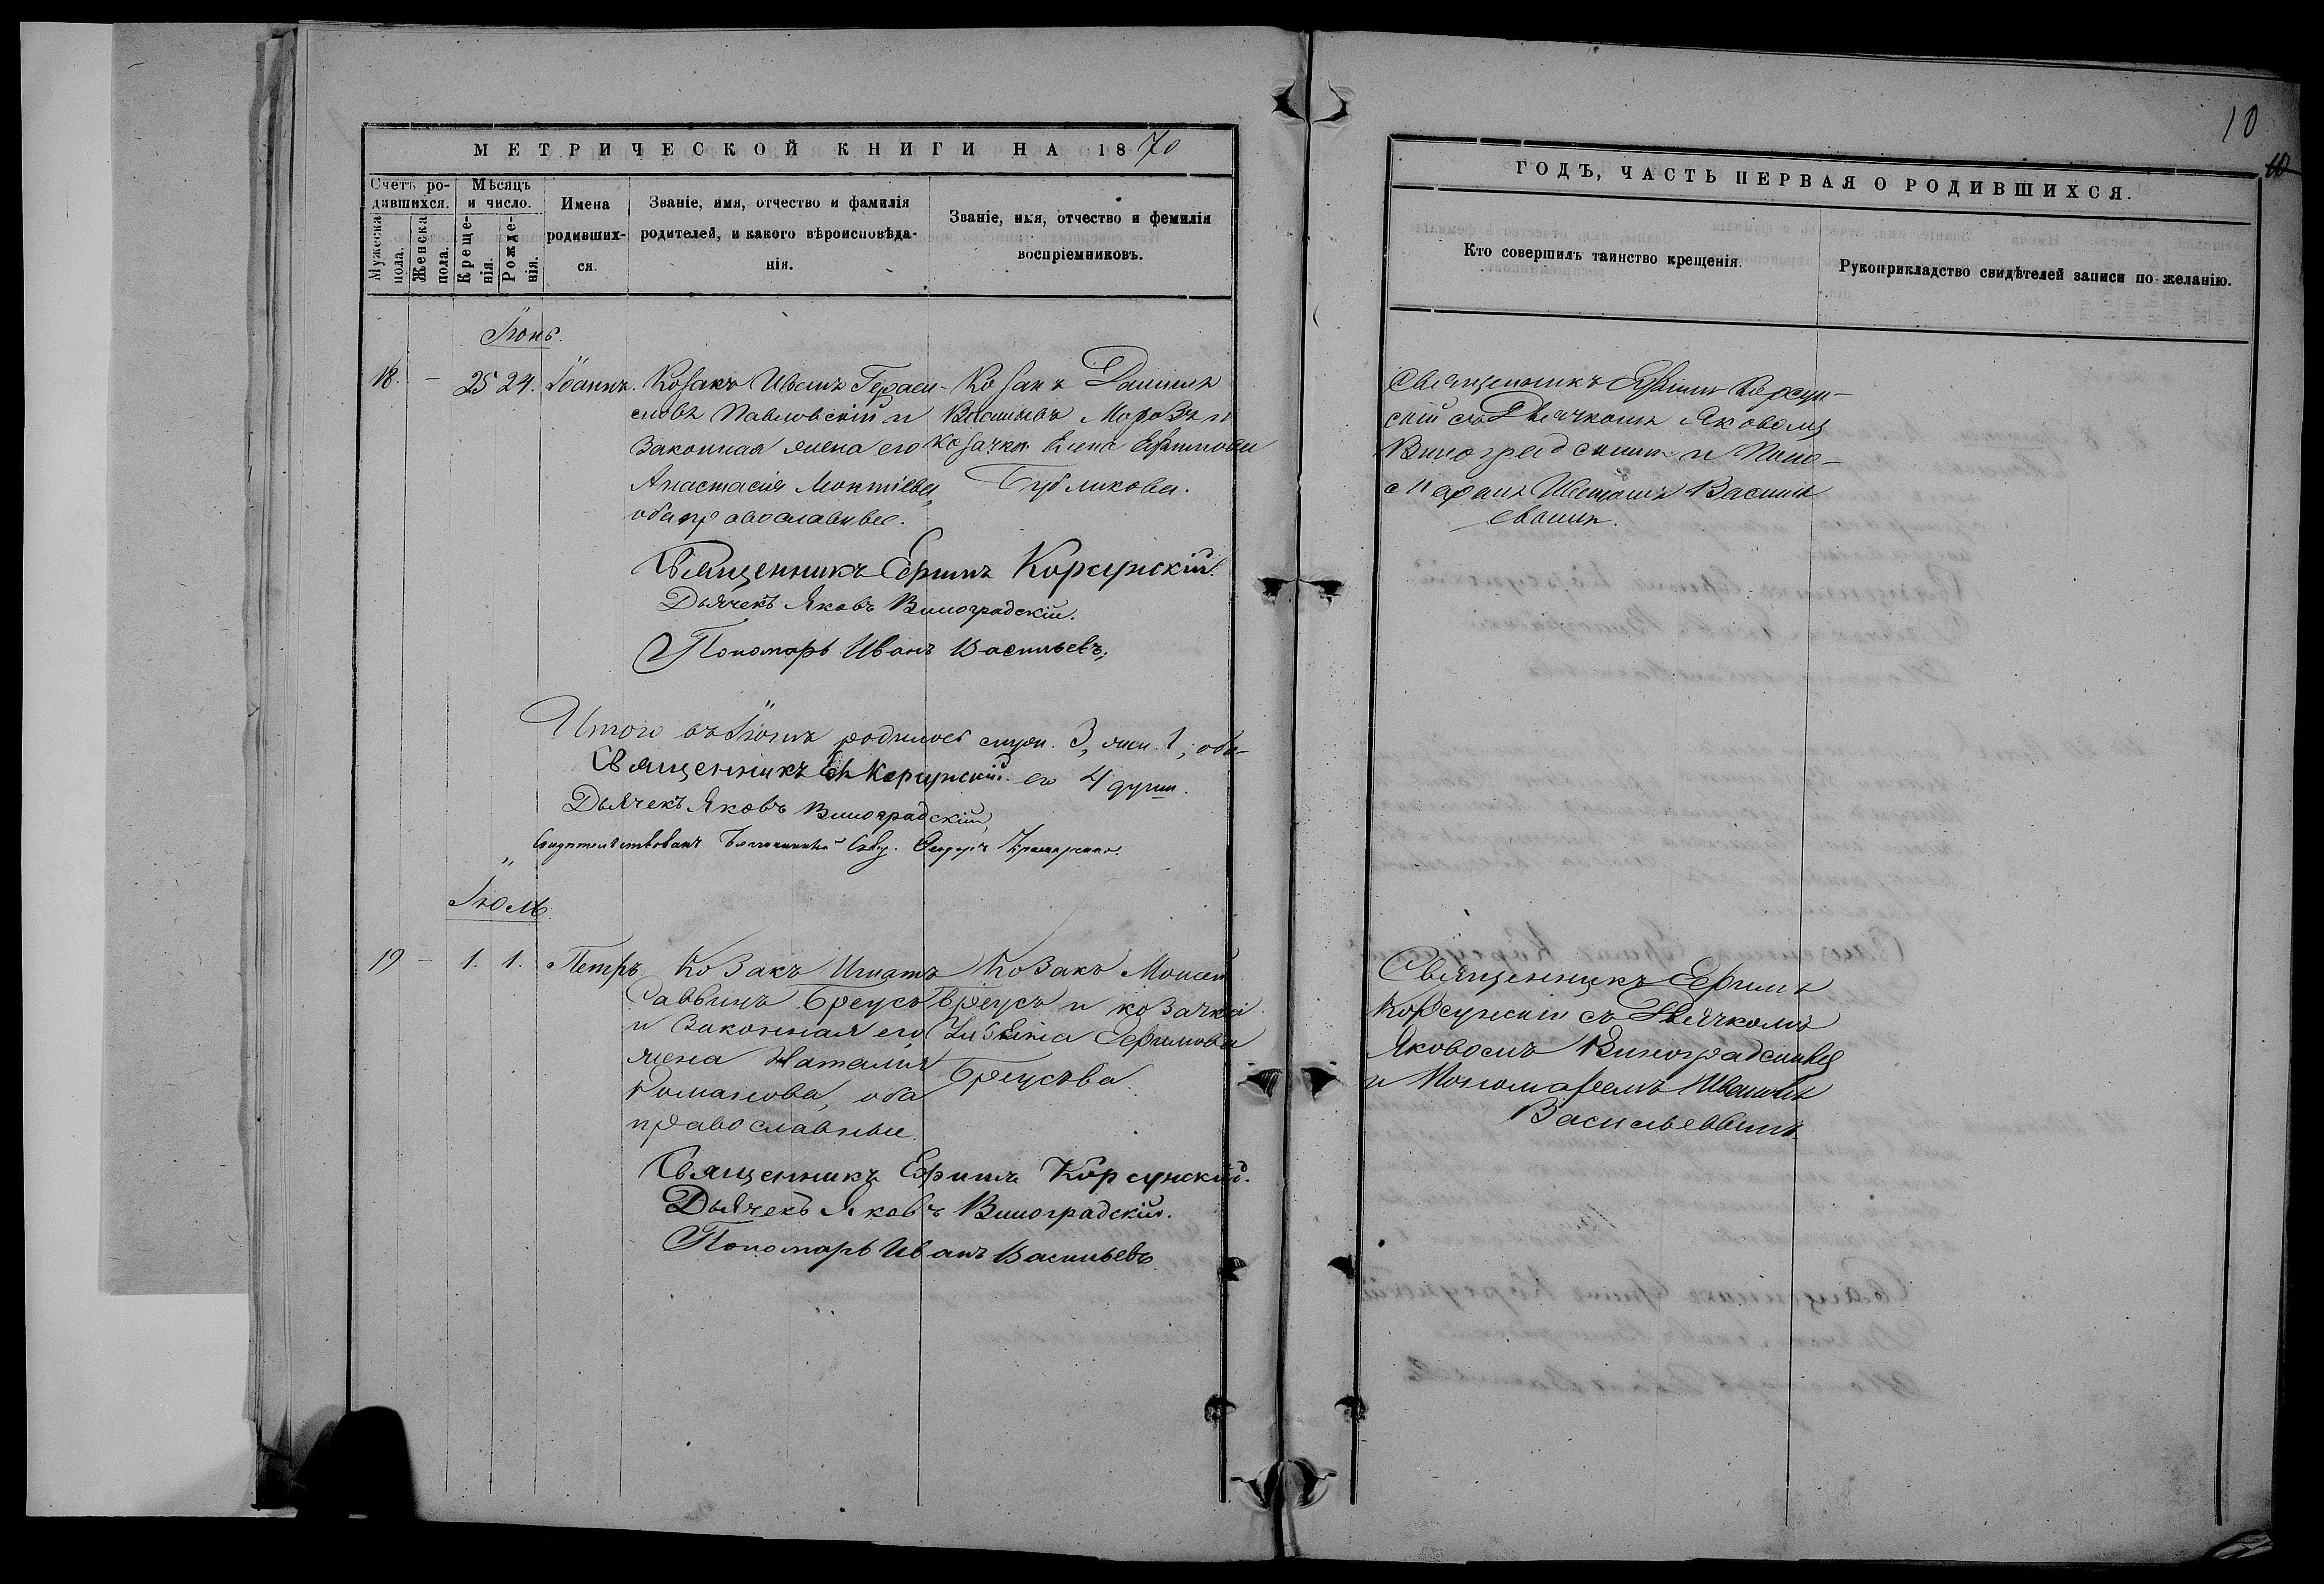 МЕТРИЧЕСКОЙ КНИГИ НА 1870
Счетъ ро-
дившихся.
Мужеска
пола.
Женска
пола.
Мѣсяцъ
и число.
Креще-
нія.
Рожде-
нія.
Имена
родивших-
ся.
Званіе, имя, отчество и фамилія
родителей, и какого вѣроисповѣда-
нія.
Званіе, имя, отчество и фемилія
воспріемниковъ.
Іюнь.
18. — 25 24. Іоаннъ.
Козакъ Иванъ Гераси-
мовъ Павловскій и
законная жена его
Анастасія Монтіева,
оба православные.
Козакъ Даніилъ
Васильевъ Морозъ и
козачка Елена Ефимова
Бубликова.
Священникъ Ефимъ Корсунскій.
Дьячекъ Яковъ Виноградскій.
Пономарь Иванъ Васильевъ.
Итого въ Іюнѣ родилось муж. 3, жен. 1, обо-
его 4 души.
Священникъ Еф. Корсунскій.
Дьячекъ Яковъ Виноградскій
Свидѣтельствовалъ Благочинный Свящ. Ѳеодоръ
Іюль
19 — 1. 1. Петръ.
Козакъ Игнатъ
Саввинъ Бреусъ
и законная его
жена Наталія
Романова, оба
православные.
Козакъ Моисей
Бреусъ и козачка
Ефимова
Бреусова.
Священникъ Ефимъ Корсунскій.
Дьячекъ Яковъ Виноградскій.
Пономарь Иванъ Васильевъ
10
10
ГОДЪ, ЧАСТЬ ПЕРВАЯ О РОДИВШИХСЯ.
Кто совершилъ таинство крещенія.
Рукоприкладство свидѣтелей записи по желанію.
Священникъ Ефимъ Корсун-
скій съ Дьячкомъ Яковомъ
Виноградскимъ и Поно-
маремъ Иваномъ Василь
евымъ.
Священникъ Ефимъ
Корсунскій съ Дьячкомъ
Яковомъ Виноградскимъ
и Пономаремъ Иваномъ
Васильевымъ.